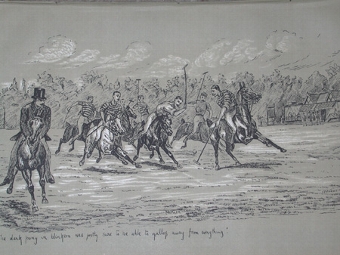 pony in blinkers was pretty sure to be able to gallop away from anything"